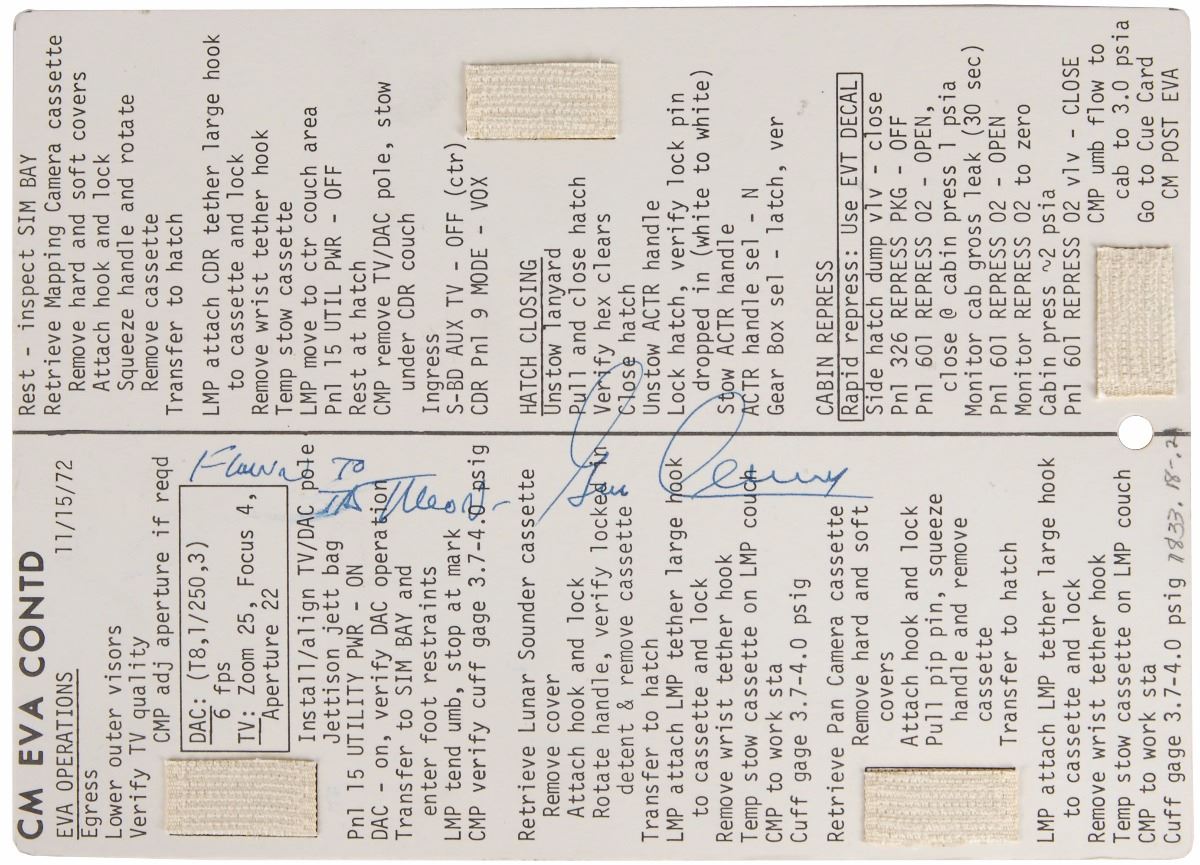 CM EVA CONTD
EVA OPERATIONS 11/15/72
Egress
Lower outer visors
Verify TV quality
CMP adj aperture if reqd
DAC: (T8,1/250,3)
6 fps
TV: Zoom 25, Focus 4,
Aperture 22
Install/align TV/DAC pole
Jettison jett bag
Pnl 15 UTILITY PWR - ON
DAC - on, verify DAC operation
Transfer to SIM BAY and
enter foot restraints
LMP tend umb, stop at mark
CMP verify cuff gage 3.7-4.0 psig
Retrieve Lunar Sounder cassette
Remove cover
Attach hook and lock
Rotate handle, verify locked in
detent & remove cassette
Transfer to hatch
LMP attach LMP tether large hook
to cassette and lock
Remove wrist tether hook
Temp stow cassette on LMP couch
CMP to work sta
Cuff gage 3.7-4.0 psig
Retrieve Pan Camera cassette
Remove hard and soft
covers
Attach hook and lock
Pull pip pin, squeeze
handle and remove
cassette
Transfer to hatch
LMP attach LMP tether large hook
to cassette and lock
Remove wrist tether hook
Temp stow cassette on LMP couch
CMP to work sta
Cuff gage 3.7-4.0 psig
Rest - inspect SIM BAY
Retrieve Mapping Camera cassette
Remove hard and soft covers
Attach hook and lock
Squeeze handle and rotate
Remove cassette
Transfer to hatch
LMP attach CDR tether large hook
to cassette and lock
Remove wrist tether hook
Temp stow cassette
LMP move to ctr couch area
Pnl 15 UTIL PWR - OFF
Rest at hatch
CMP remove TV/DAC pole, stow
under CDR couch
Ingress
S-BD AUX TV - OFF (ctr)
CDR Pnl 9 MODE - VOX
HATCH CLOSING
Unstow lanyard
Pull and close hatch
Verify hex clears
Close hatch
Unstow ACTR handle
Lock hatch, verify lock pin
dropped in (white to white)
Stow ACTR handle
ACTR handle sel - N
Gear Box sel - latch, ver
CABIN REPRESS
Rapid repress: Use EVT DECAL
Side hatch dump vlv - close
Pnl 326 REPRESS PKG - OFF
Pnl 601 REPRESS O2 - OPEN,
close @ cabin press 1 psia
Monitor cab gross leak (30 sec)
Pnl 601 REPRESS O2 - OPEN
Monitor REPRESS O2 to zero
Cabin press ~2 psia
Pnl 601 REPRESS O2 vlv - CLOSE
CMP umb flow to
cab to 3.0 psia
Go to Cue Card
CM POST EVA
Flown To
The Moon -
Gene Cernan